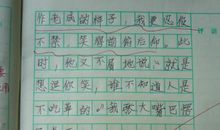 作老成的样子，我更忍俊
不禁，笑得前俯后仰。此
时，他又不屑地说：就是
想逗你笑，谁不知道人是
不吃草的。我张大嘴巴愣